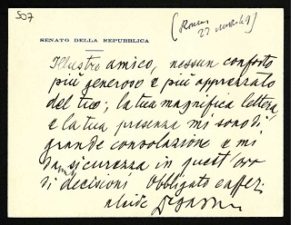 507
(Roma
27 nov. 47)
SENATO DELLA REPUBBLICA
Illustre amico, nessun conforto
più generoso e più apprezzato
del tuo; la tua magnifica lettera
e la tua presenza mi sono di
grande consolazione e mi
dan sicurezza in quest'ora
di decisioni Obbligato e affez.